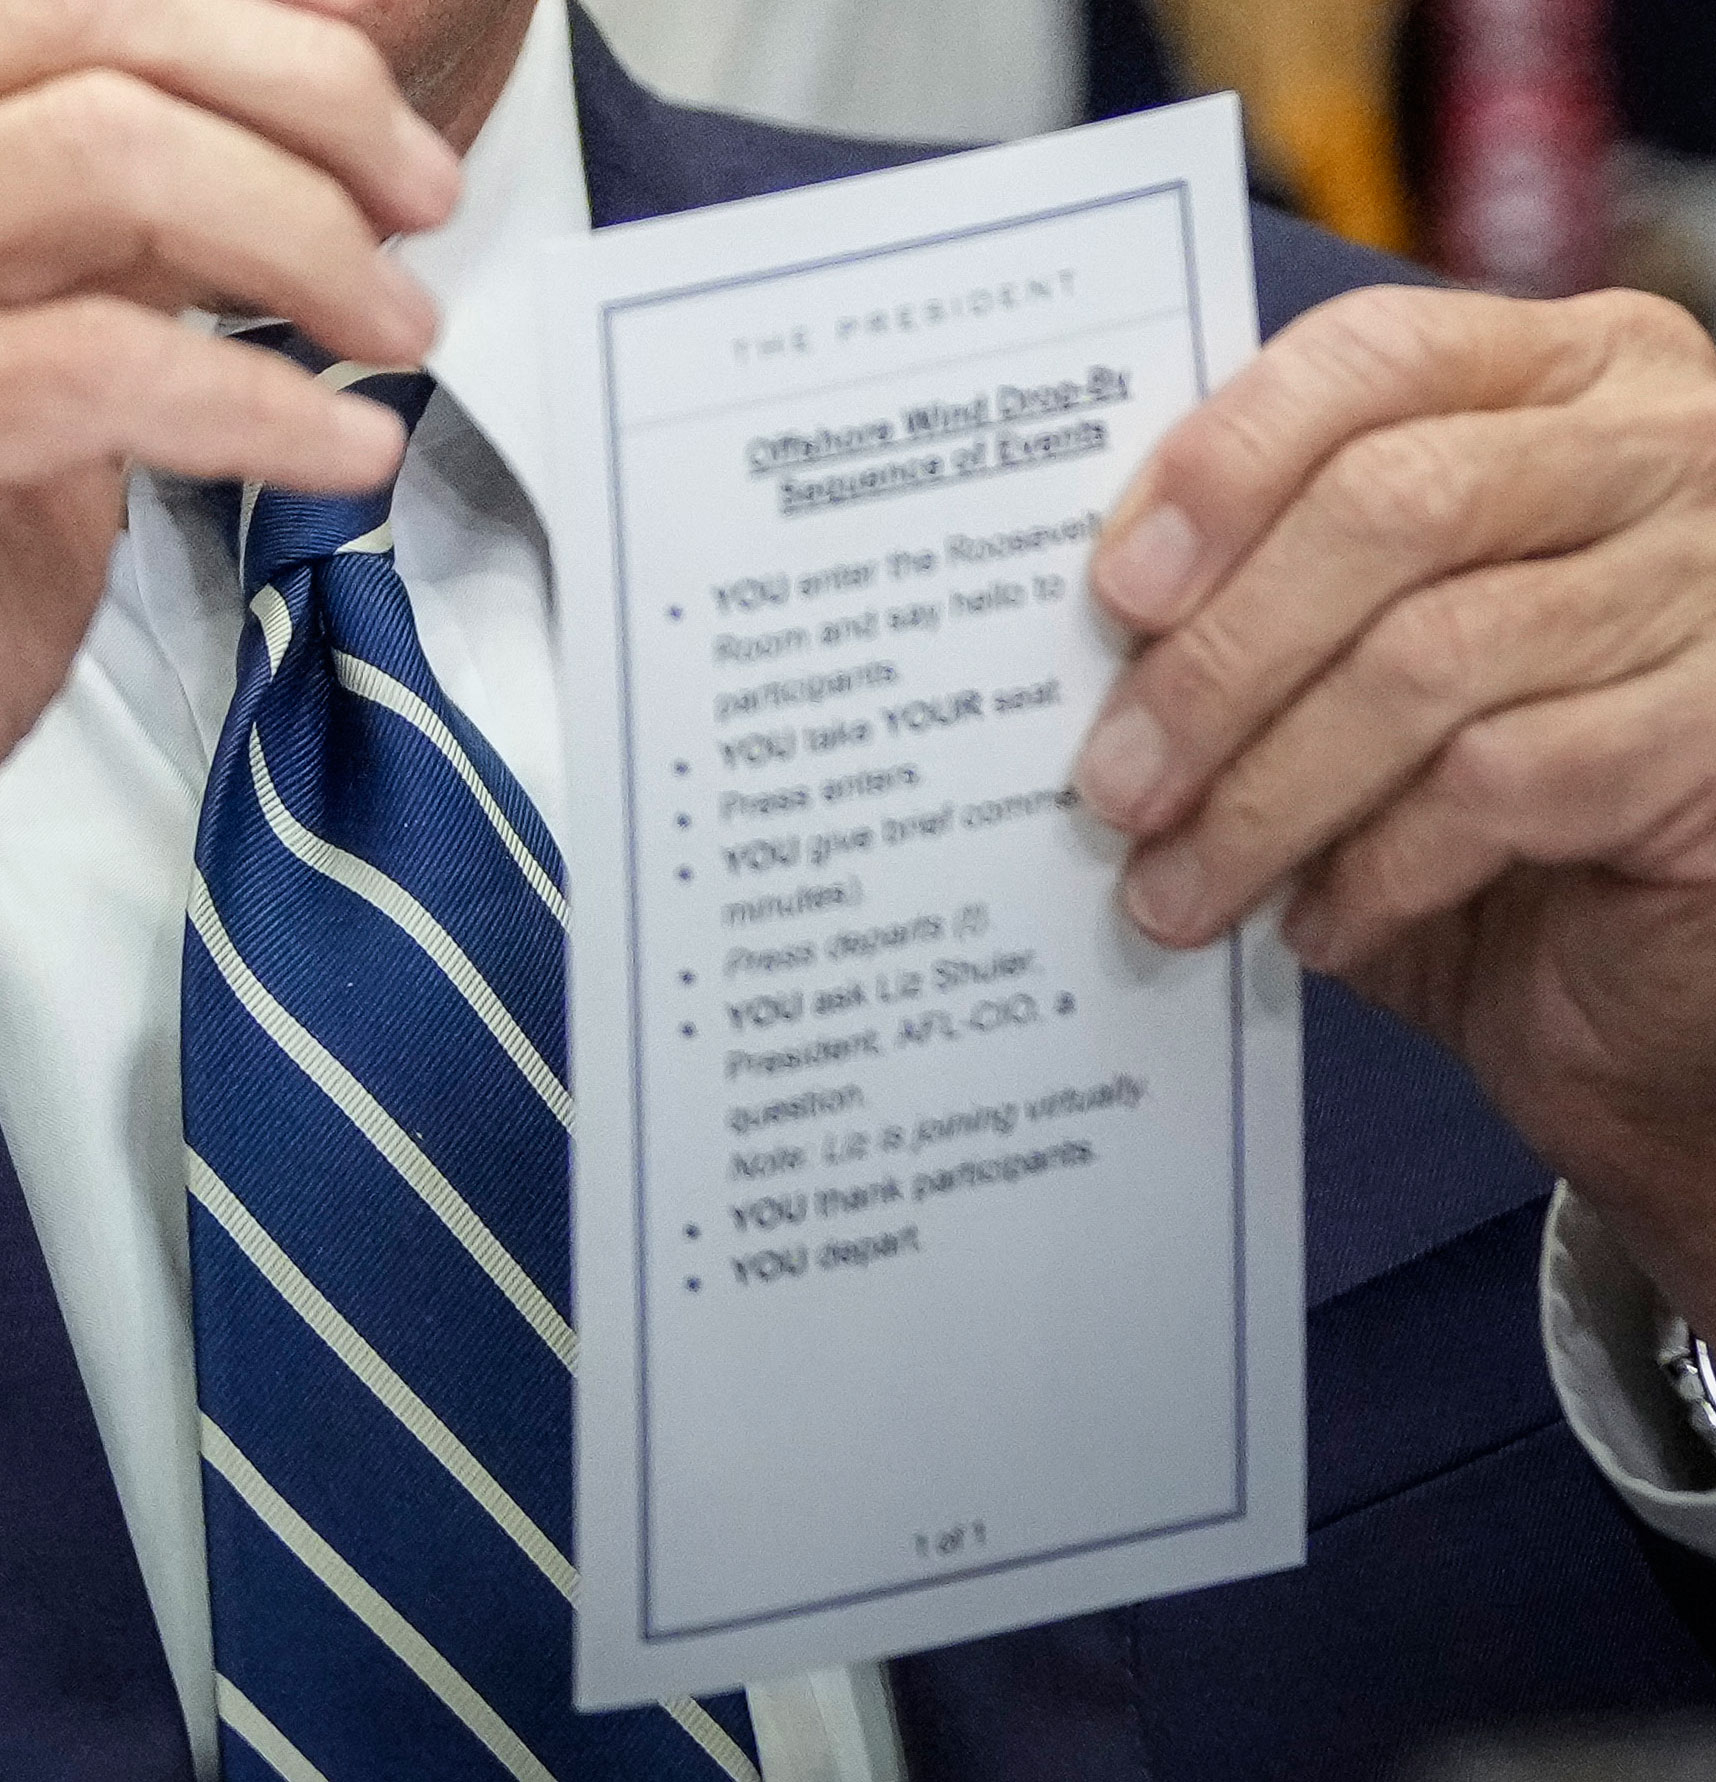 THE PRESIDENT
Offshore Wind Drop-By
Sequence of Events
• YOU enter the Roosevelt
Room and say hello to
participants.
• YOU take YOUR seat.
• Press enters.
• YOU give brief comme
minutes).
• Press departs (!).
• YOU ask Liz Shuler,
President, AFL-CIO, a
question.
Note: Liz is joining virtually.
• YOU thank participants.
• YOU depart.
1 of 1